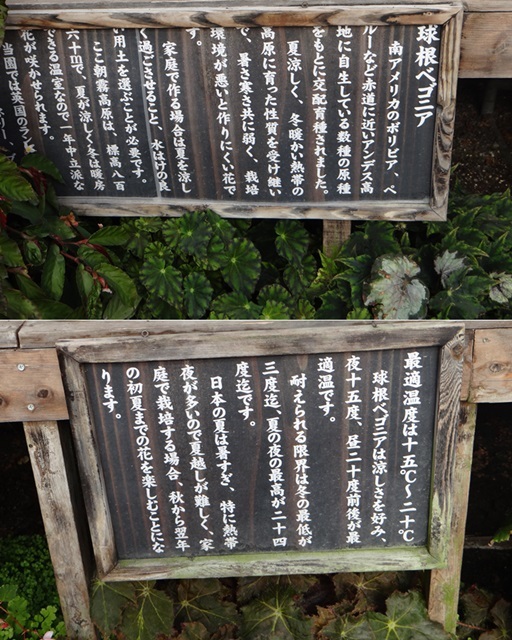 球根ベゴニア
南アメリカのボリビア、ペ
ルーなど赤道に近いアンデス高
地に自生している数種の原種
をもとに交配育種されました。
夏涼しく、冬暖かい熱帯の
高原に育った性質を受け継い
で、暑さ寒さ共に弱く、栽培
環境が悪いと作りにくい花で
す。
家庭で作る場合は夏を涼し
く過ごさせること、水はけの良
い用土を選ぶことが必要です。
ここ朝霧高原は、標高八百
六十mで、夏が涼しく冬は暖房
できる温室なので一年中立派な
花が咲かせられます。
当園では英国のラン
最適温度は十五℃~二十℃
球根ベゴニアは涼しさを好み、
夜十五度、昼二十度前後が最
適温です。
耐えられる限界は冬の最低が
三度迄、夏の夜の最高が二十四
度迄です。
日本の夏は暑すぎ、特に熱帯
夜が多いので夏越しが難しく、家
庭で栽培する場合、秋から翌年
の初夏までの花を楽しむことにな
ります。